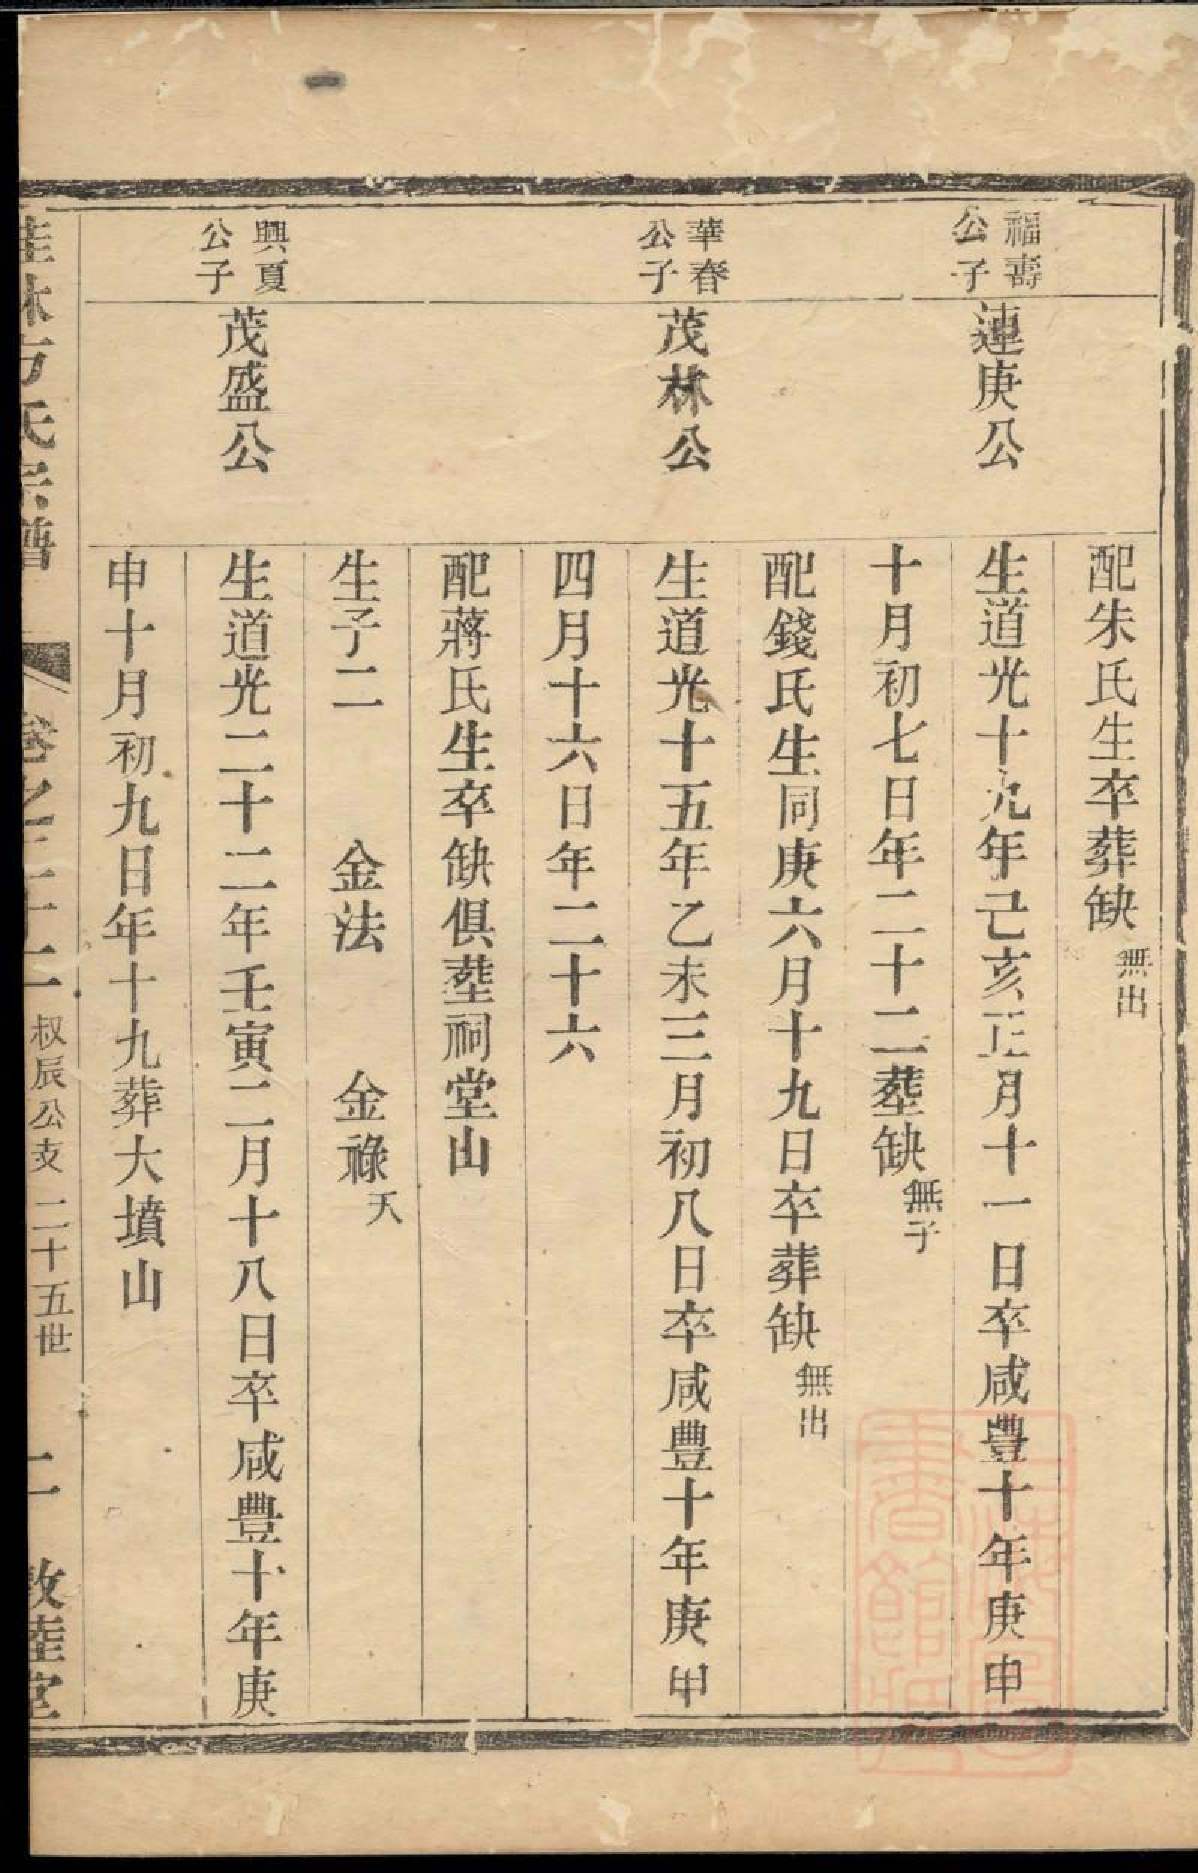 配朱氏生卒葬缺無出
福壽
公子
連庚公
生道光十九年己亥正月十一日卒咸豐十年庚申
十月初七日年二十二塟缺無子
配錢氏生同庚六月十九日卒葬缺無出
華春
公子
茂林公
生道光十五年乙未三月初八日卒咸豐十年庚申
四月十六日年二十六
配蔣氏生卒缺俱塟祠堂山
生子二 金法 金祿夭
興夏
公子
茂盛公
生道光二十二年壬寅二月十八日卒咸豐十年庚
申十月初九日年十九葬大墳山
桂林方氏宗譜
卷之二十二 叔辰公支 二十五世
二 敦睦堂
上海圖書館藏